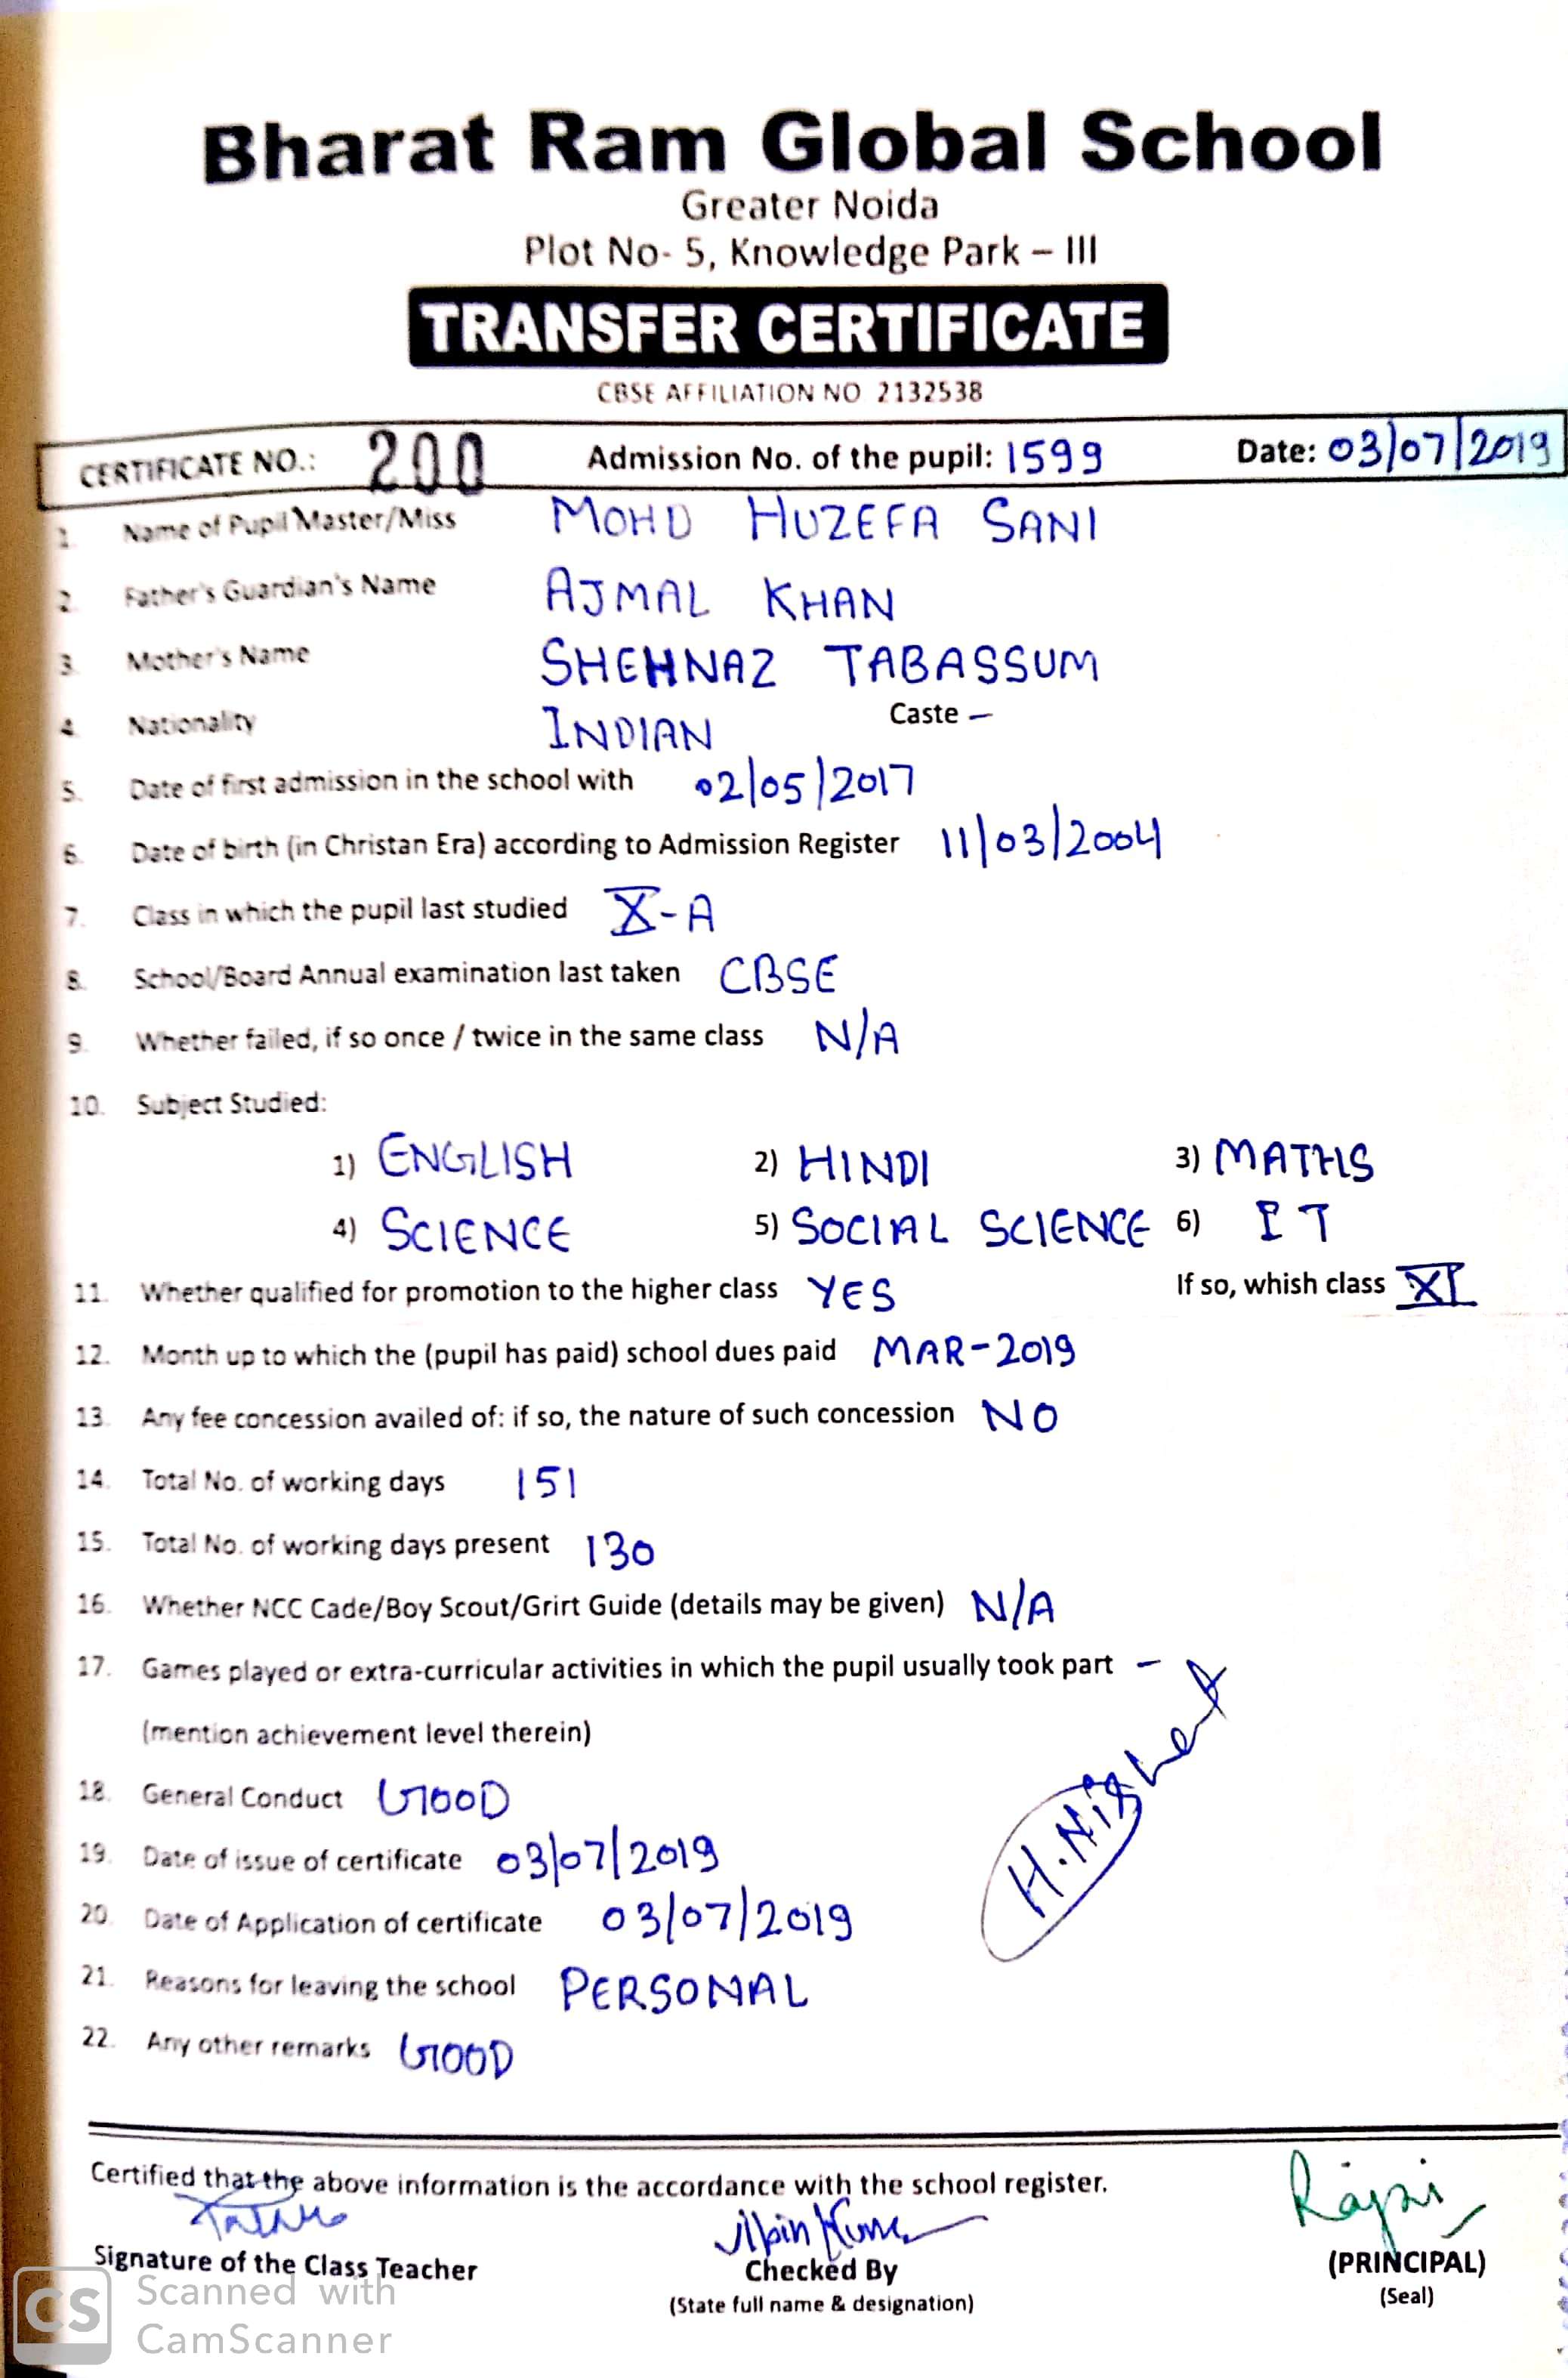 Bharat Ram Global School
Greater Noida
Plot No- 5, Knowledge Park – III
TRANSFER CERTIFICATE
CBSE AFFILIATION NO 2132538
CERTIFICATE NO.: 200 Admission No. of the pupil: 1599 Date: 03/07/2019
1. Name of Pupil Master/Miss MOHD HUZEFA SANI
2. Father's Guardian's Name AJMAL KHAN
3. Mother's Name SHEHNAZ TABASSUM
4. Nationality INDIAN Caste –
5. Date of first admission in the school with 02/05/2017
6. Date of birth (in Christan Era) according to Admission Register 11/03/2004
7. Class in which the pupil last studied X-A
8. School/Board Annual examination last taken CBSE
9. Whether failed, if so once / twice in the same class N/A
10. Subject Studied:
1) ENGLISH 2) HINDI 3) MATHS
4) SCIENCE 5) SOCIAL SCIENCE 6) IT
11. Whether qualified for promotion to the higher class YES If so, whish class XI
12. Month up to which the (pupil has paid) school dues paid MAR-2019
13. Any fee concession availed of: if so, the nature of such concession NO
14. Total No. of working days 151
15. Total No. of working days present 130
16. Whether NCC Cade/Boy Scout/Grirt Guide (details may be given) N/A
17. Games played or extra-curricular activities in which the pupil usually took part –
(mention achievement level therein)
18. General Conduct GOOD
19. Date of issue of certificate 03/07/2019
20. Date of Application of certificate 03/07/2019
21. Reasons for leaving the school PERSONAL
22. Any other remarks GOOD
Certified that the above information is the accordance with the school register.
Signature of the Class Teacher Checked By (PRINCIPAL)
(State full name & designation) (Seal)
CS Scanned with
CamScanner